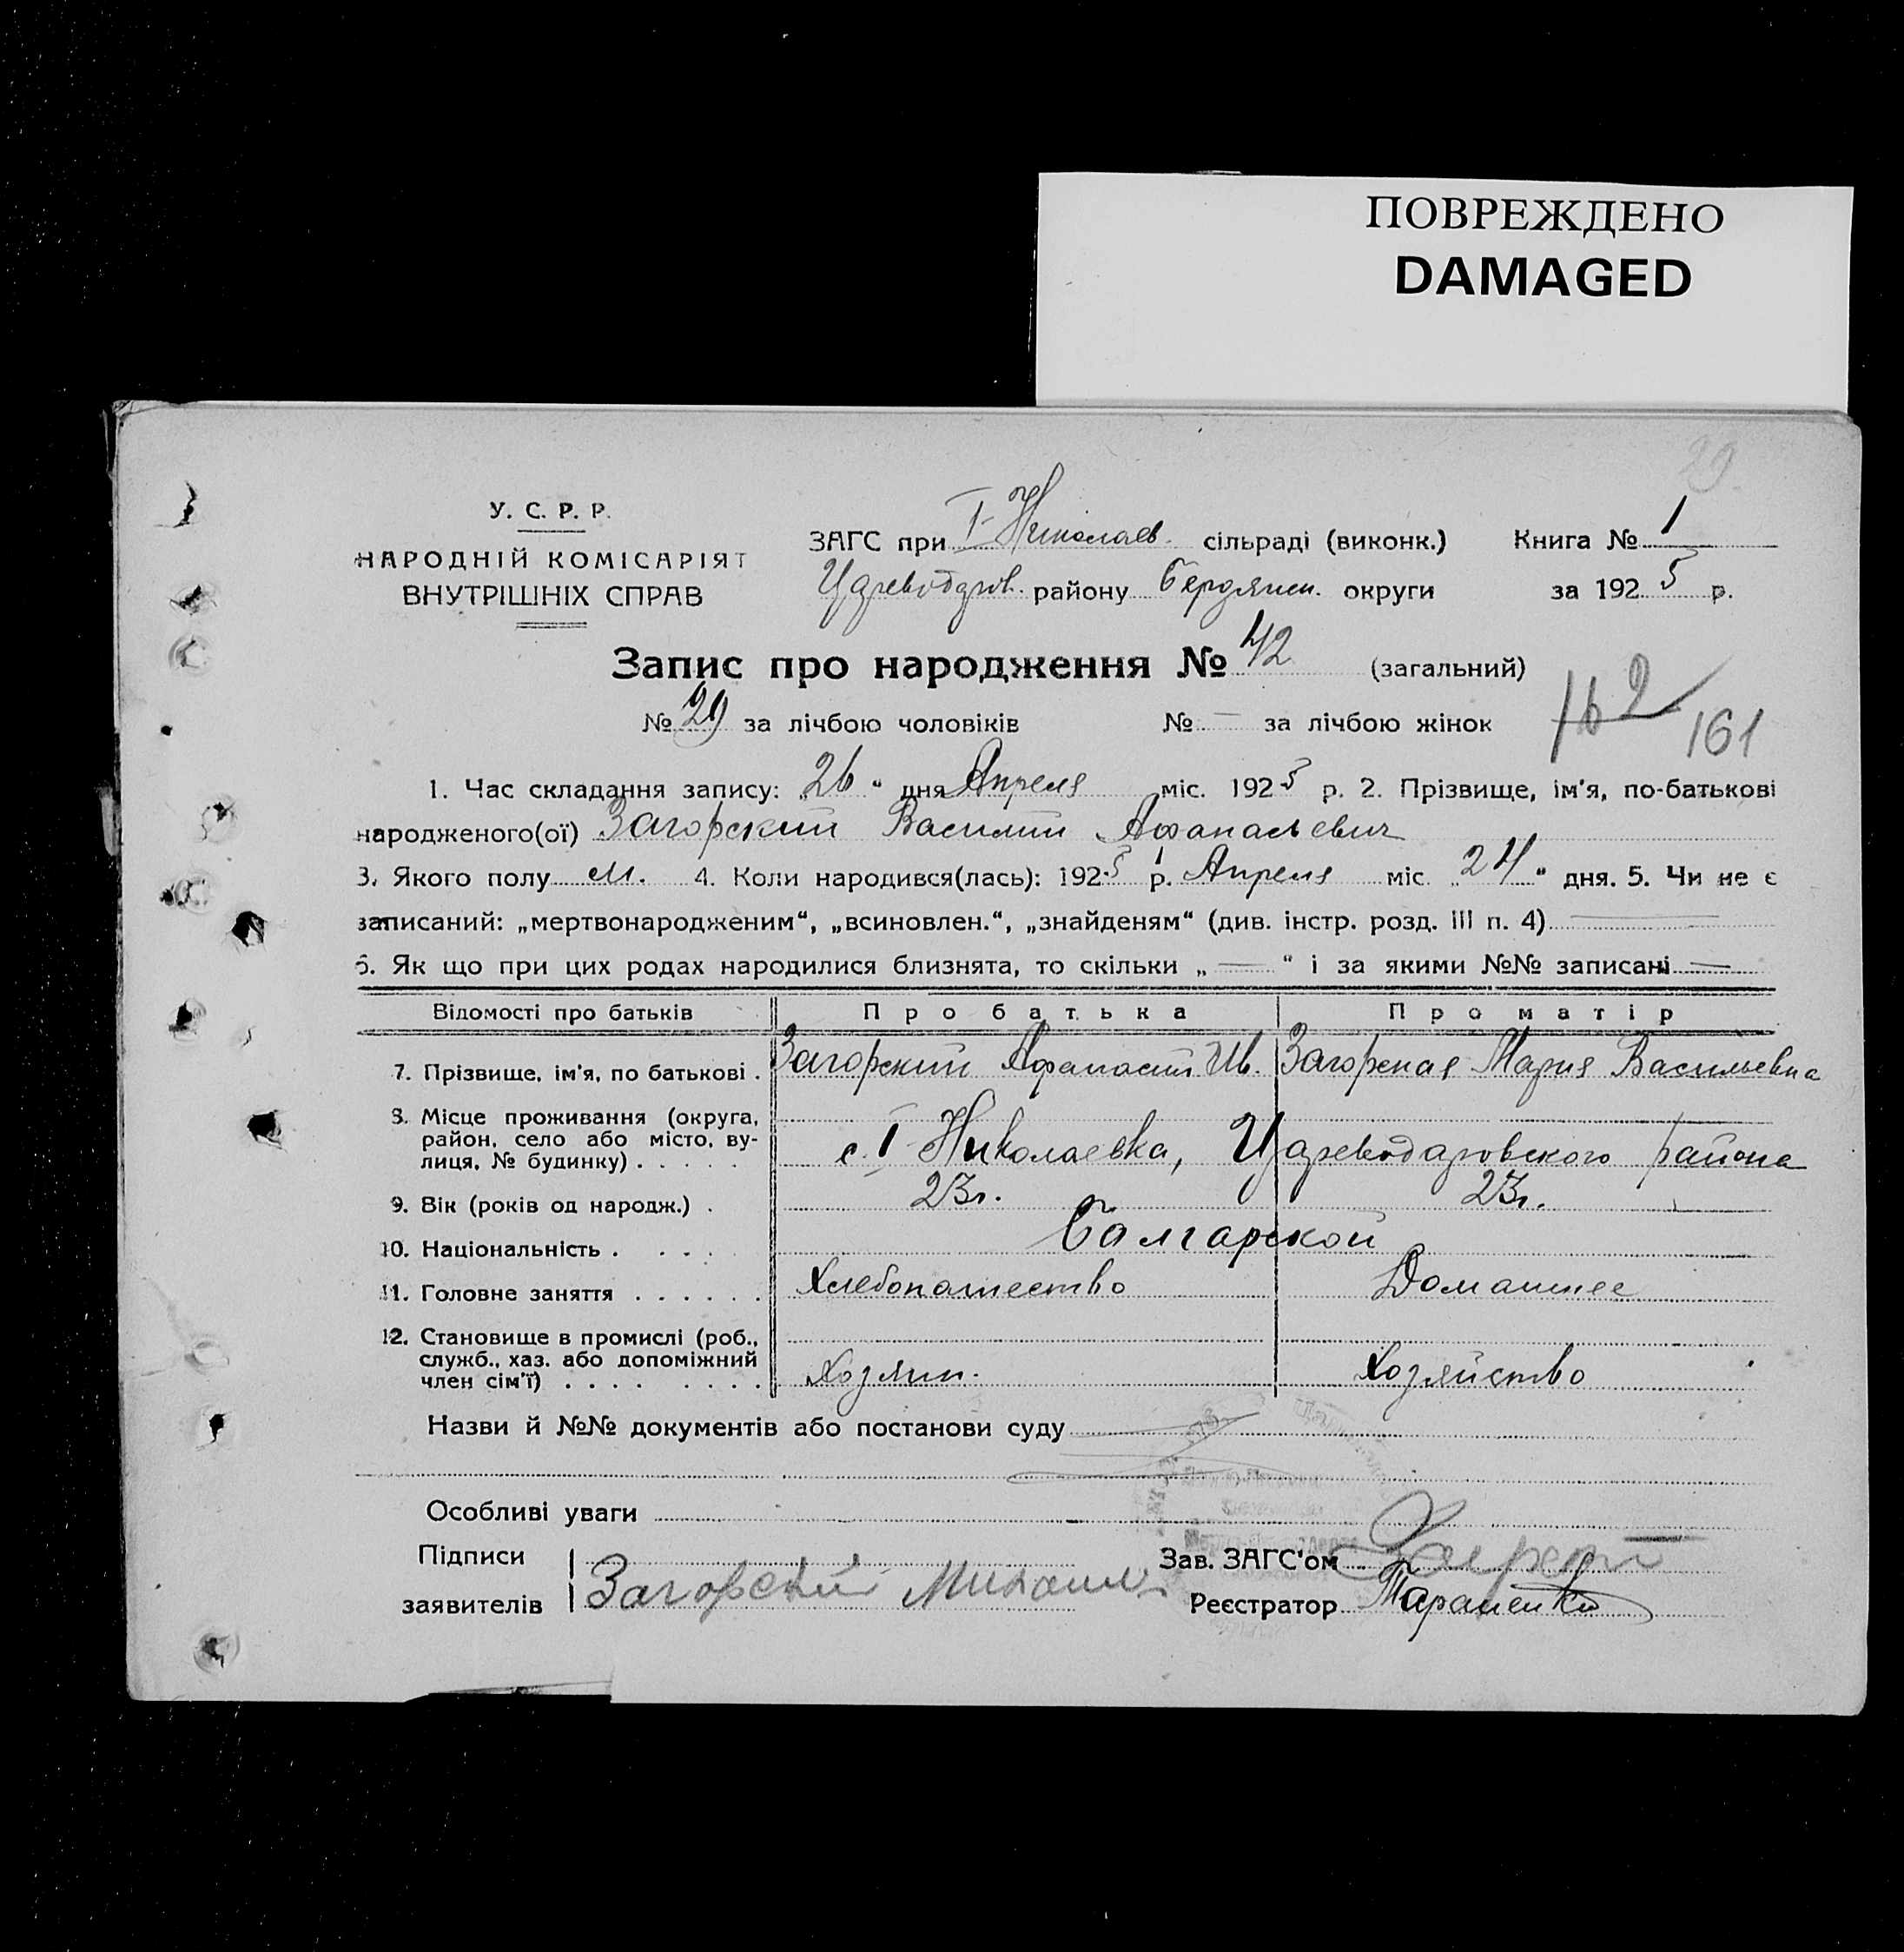 ПОВРЕЖДЕНО
DAMAGED
29.
У. С. Р. Р.
НАРОДНІЙ КОМІСАРІЯТ
ВНУТРІШНІХ СПРАВ
ЗАГС при I-Николаев. сільраді (виконк.) Книга № 1
Цареводаров. району Бердянск. округи за 1925 р.
Запис про народження № 42 (загальний)
№ 29 за лічбою чоловіків № — за лічбою жінок
162 161
1. Час складання запису: „26“ дня Апреля міс. 1925 р. 2. Прізвище, ім'я, по-батькові
народженого(ої) Загорский Василий Афанасьевич
3. Якого полу м. 4. Коли народився(лась): 1925 р. Апреля міс. „24“ дня. 5. Чи не є
записаний: „мертвонародженим“, „всиновлен.“, „знайденям“ (див. інстр. розд. III п. 4) —
6. Як що при цих родах народилися близнята, то скільки „—“ і за якими №№ записані —
Відомості про батьків Про батька Про матір
7. Прізвище, ім'я, по батькові . Загорский Афанасий Ив. Загорская Мария Васильевна
8. Місце проживання (округа,
район, село або місто, ву-
лиця, № будинку) . . . . . с. I Николаевка, Цареводаровского района
9. Вік (років од народж.) . 23г. 23г.
10. Національність . . . . Болгарской
11. Головне заняття . . . . . . Хлебопашество Домашнее
12. Становище в промислі (роб.,
служб., хаз. або допоміжний
член сім'ї) . . . . . . . . Хозяин. Хозяйство
Назви й №№ документів або постанови суду
Особливі уваги
Підписи
заявителів Загорский Михаил
Зав. ЗАГС'ом
Реєстратор Тараненко